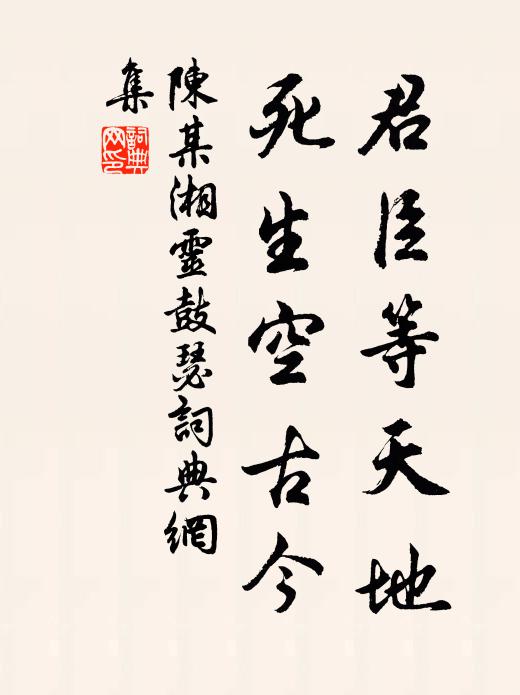 君臣等天地
死生空古今
陳某湘靈鼓瑟詞典網
集
詞典
网印